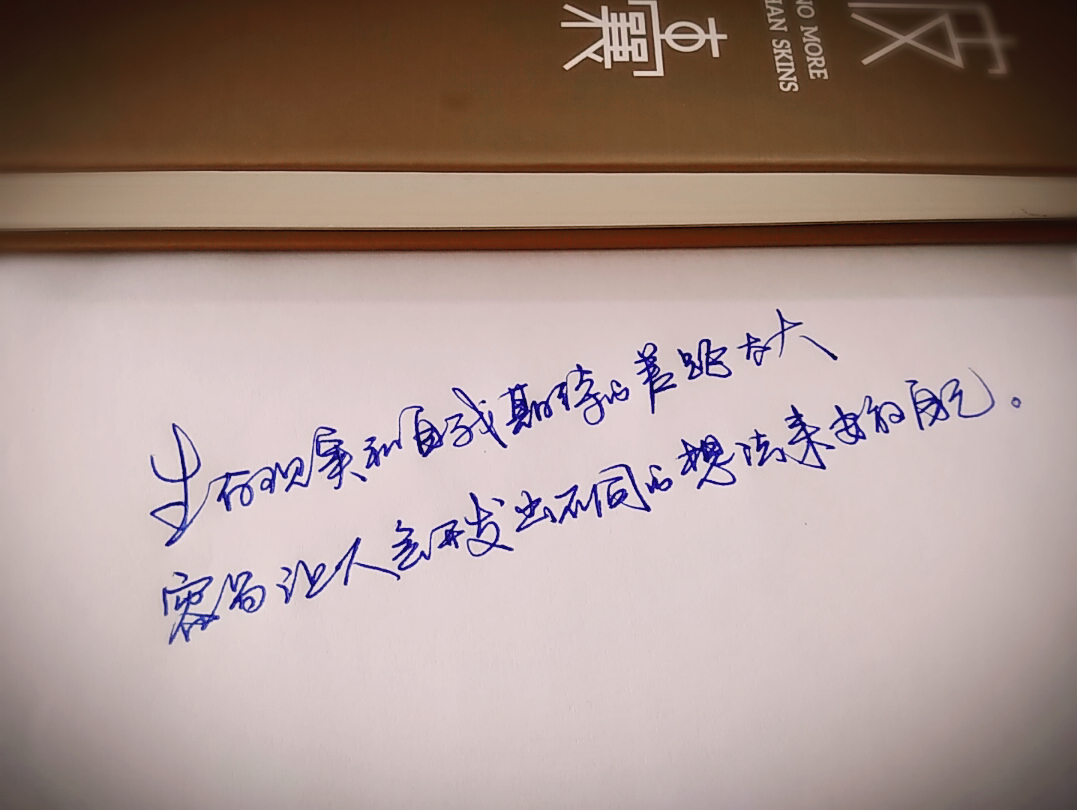 NO MORE
IAN SKINS
皮
生存现实和自我期待的差距太大
容易让人会开发出不同的想法来安的自己。